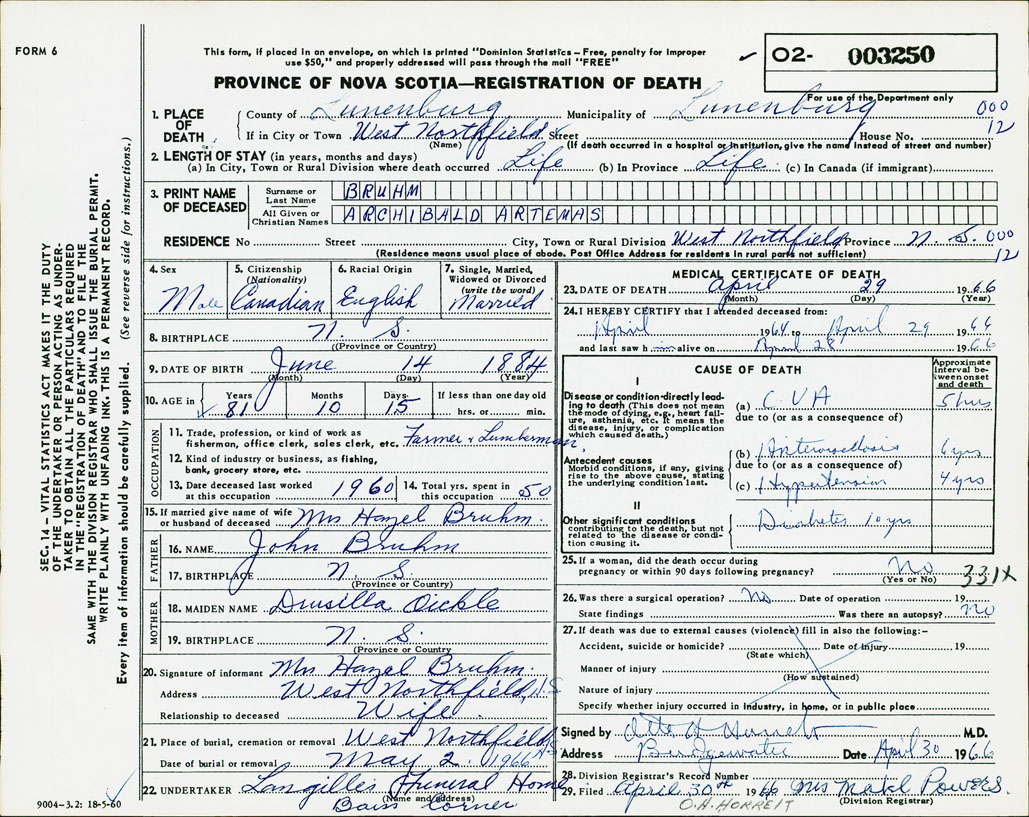 FORM 6
This form, if placed in an envelope, on which is printed "Dominion Statistics – Free, penalty for improper
use $50," and properly addressed will pass through the mail "FREE"
✓ O2- 003250
For use of the Department only
PROVINCE OF NOVA SCOTIA—REGISTRATION OF DEATH
1. PLACE OF DEATH County of Lunenburg Municipality of Lunenburg 000
If in City or Town West Northfield Street House No. 12
(Name) (If death occurred in a hospital or institution, give the name instead of street and number)
2. LENGTH OF STAY (in years, months and days)
(a) In City, Town or Rural Division where death occurred Life (b) In Province Life (c) In Canada (if immigrant)
3. PRINT NAME OF DECEASED Surname or Last Name BRUHM
All Given or Christian Names ARCHIBALD ARTEMAS
RESIDENCE No Street City, Town or Rural Division West Northfield Province N. S. 000
(Residence means usual place of abode. Post Office Address for residents in rural parts not sufficient) 12
4. Sex Male
5. Citizenship (Nationality) Canadian
6. Racial Origin English
7. Single, Married, Widowed or Divorced (write the word) Married
8. BIRTHPLACE N. S.
(Province or Country)
9. DATE OF BIRTH June 14 1884
(Month) (Day) (Year)
10. AGE in Years Months Days If less than one day old
81 10 15 hrs. or min.
OCCUPATION
11. Trade, profession, or kind of work as fisherman, office clerk, sales clerk, etc. Farmer & Lumberman
12. Kind of industry or business, as fishing, bank, grocery store, etc.
13. Date deceased last worked at this occupation 1960 14. Total yrs. spent in this occupation 50
15. If married give name of wife or husband of deceased Mrs Hazel Bruhm.
FATHER
16. NAME John Bruhm
17. BIRTHPLACE N. S.
(Province or Country)
MOTHER
18. MAIDEN NAME Drusilla Oickle
19. BIRTHPLACE N. S.
(Province or Country)
20. Signature of informant Mrs Hazel Bruhm.
Address West Northfield, N.S
Relationship to deceased Wife.
21. Place of burial, cremation or removal West Northfield N.S
Date of burial or removal May 2. 1966
22. UNDERTAKER Langilles Funeral Home
(Name and address)
Bairs Corner
MEDICAL CERTIFICATE OF DEATH
23. DATE OF DEATH April 29 1966
(Month) (Day) (Year)
24. I HEREBY CERTIFY that I attended deceased from:
April 1964 to April 29 1966
and last saw him alive on April 28 1966
CAUSE OF DEATH
Approximate interval between onset and death
I
Disease or condition directly leading to death (This does not mean the mode of dying, e.g., heart failure, asthenia, etc. It means the disease, injury, or complication which caused death.)
(a) CVA 5 hrs
due to (or as a consequence of)
Antecedent causes
Morbid conditions, if any, giving rise to the above cause, stating the underlying condition last.
(b) Arteriosclerosis 6 yrs
due to (or as a consequence of)
(c) Hypertension 4 yrs
II
Other significant conditions contributing to the death, but not related to the disease or condition causing it.
Diabetes 10 yrs
25. If a woman, did the death occur during pregnancy or within 90 days following pregnancy? No
(Yes or No) 331X
26. Was there a surgical operation? No Date of operation 19
State findings Was there an autopsy? No
27. If death was due to external causes (violence) fill in also the following:–
Accident, suicide or homicide? Date of injury 19
(State which)
Manner of injury
(How sustained)
Nature of injury
Specify whether injury occurred in industry, in home, or in public place
Signed by M.D.
Address Bridgewater Date April 30 1966
28. Division Registrar's Record Number
29. Filed April 30th 1966 Mrs Powers.
(Division Registrar)
O.H. HORREIT
SEC. 14 – VITAL STATISTICS ACT MAKES IT THE DUTY
OF THE UNDERTAKER OR PERSON ACTING AS UNDER-
TAKER TO OBTAIN ALL THE PARTICULARS REQUIRED
IN THE "REGISTRATION OF DEATH" AND TO FILE THE
SAME WITH THE DIVISION REGISTRAR WHO SHALL ISSUE THE BURIAL PERMIT.
WRITE PLAINLY WITH UNFADING INK. THIS IS A PERMANENT RECORD.
Every item of information should be carefully supplied. (See reverse side for instructions.)
9004–3.2: 18-5-60